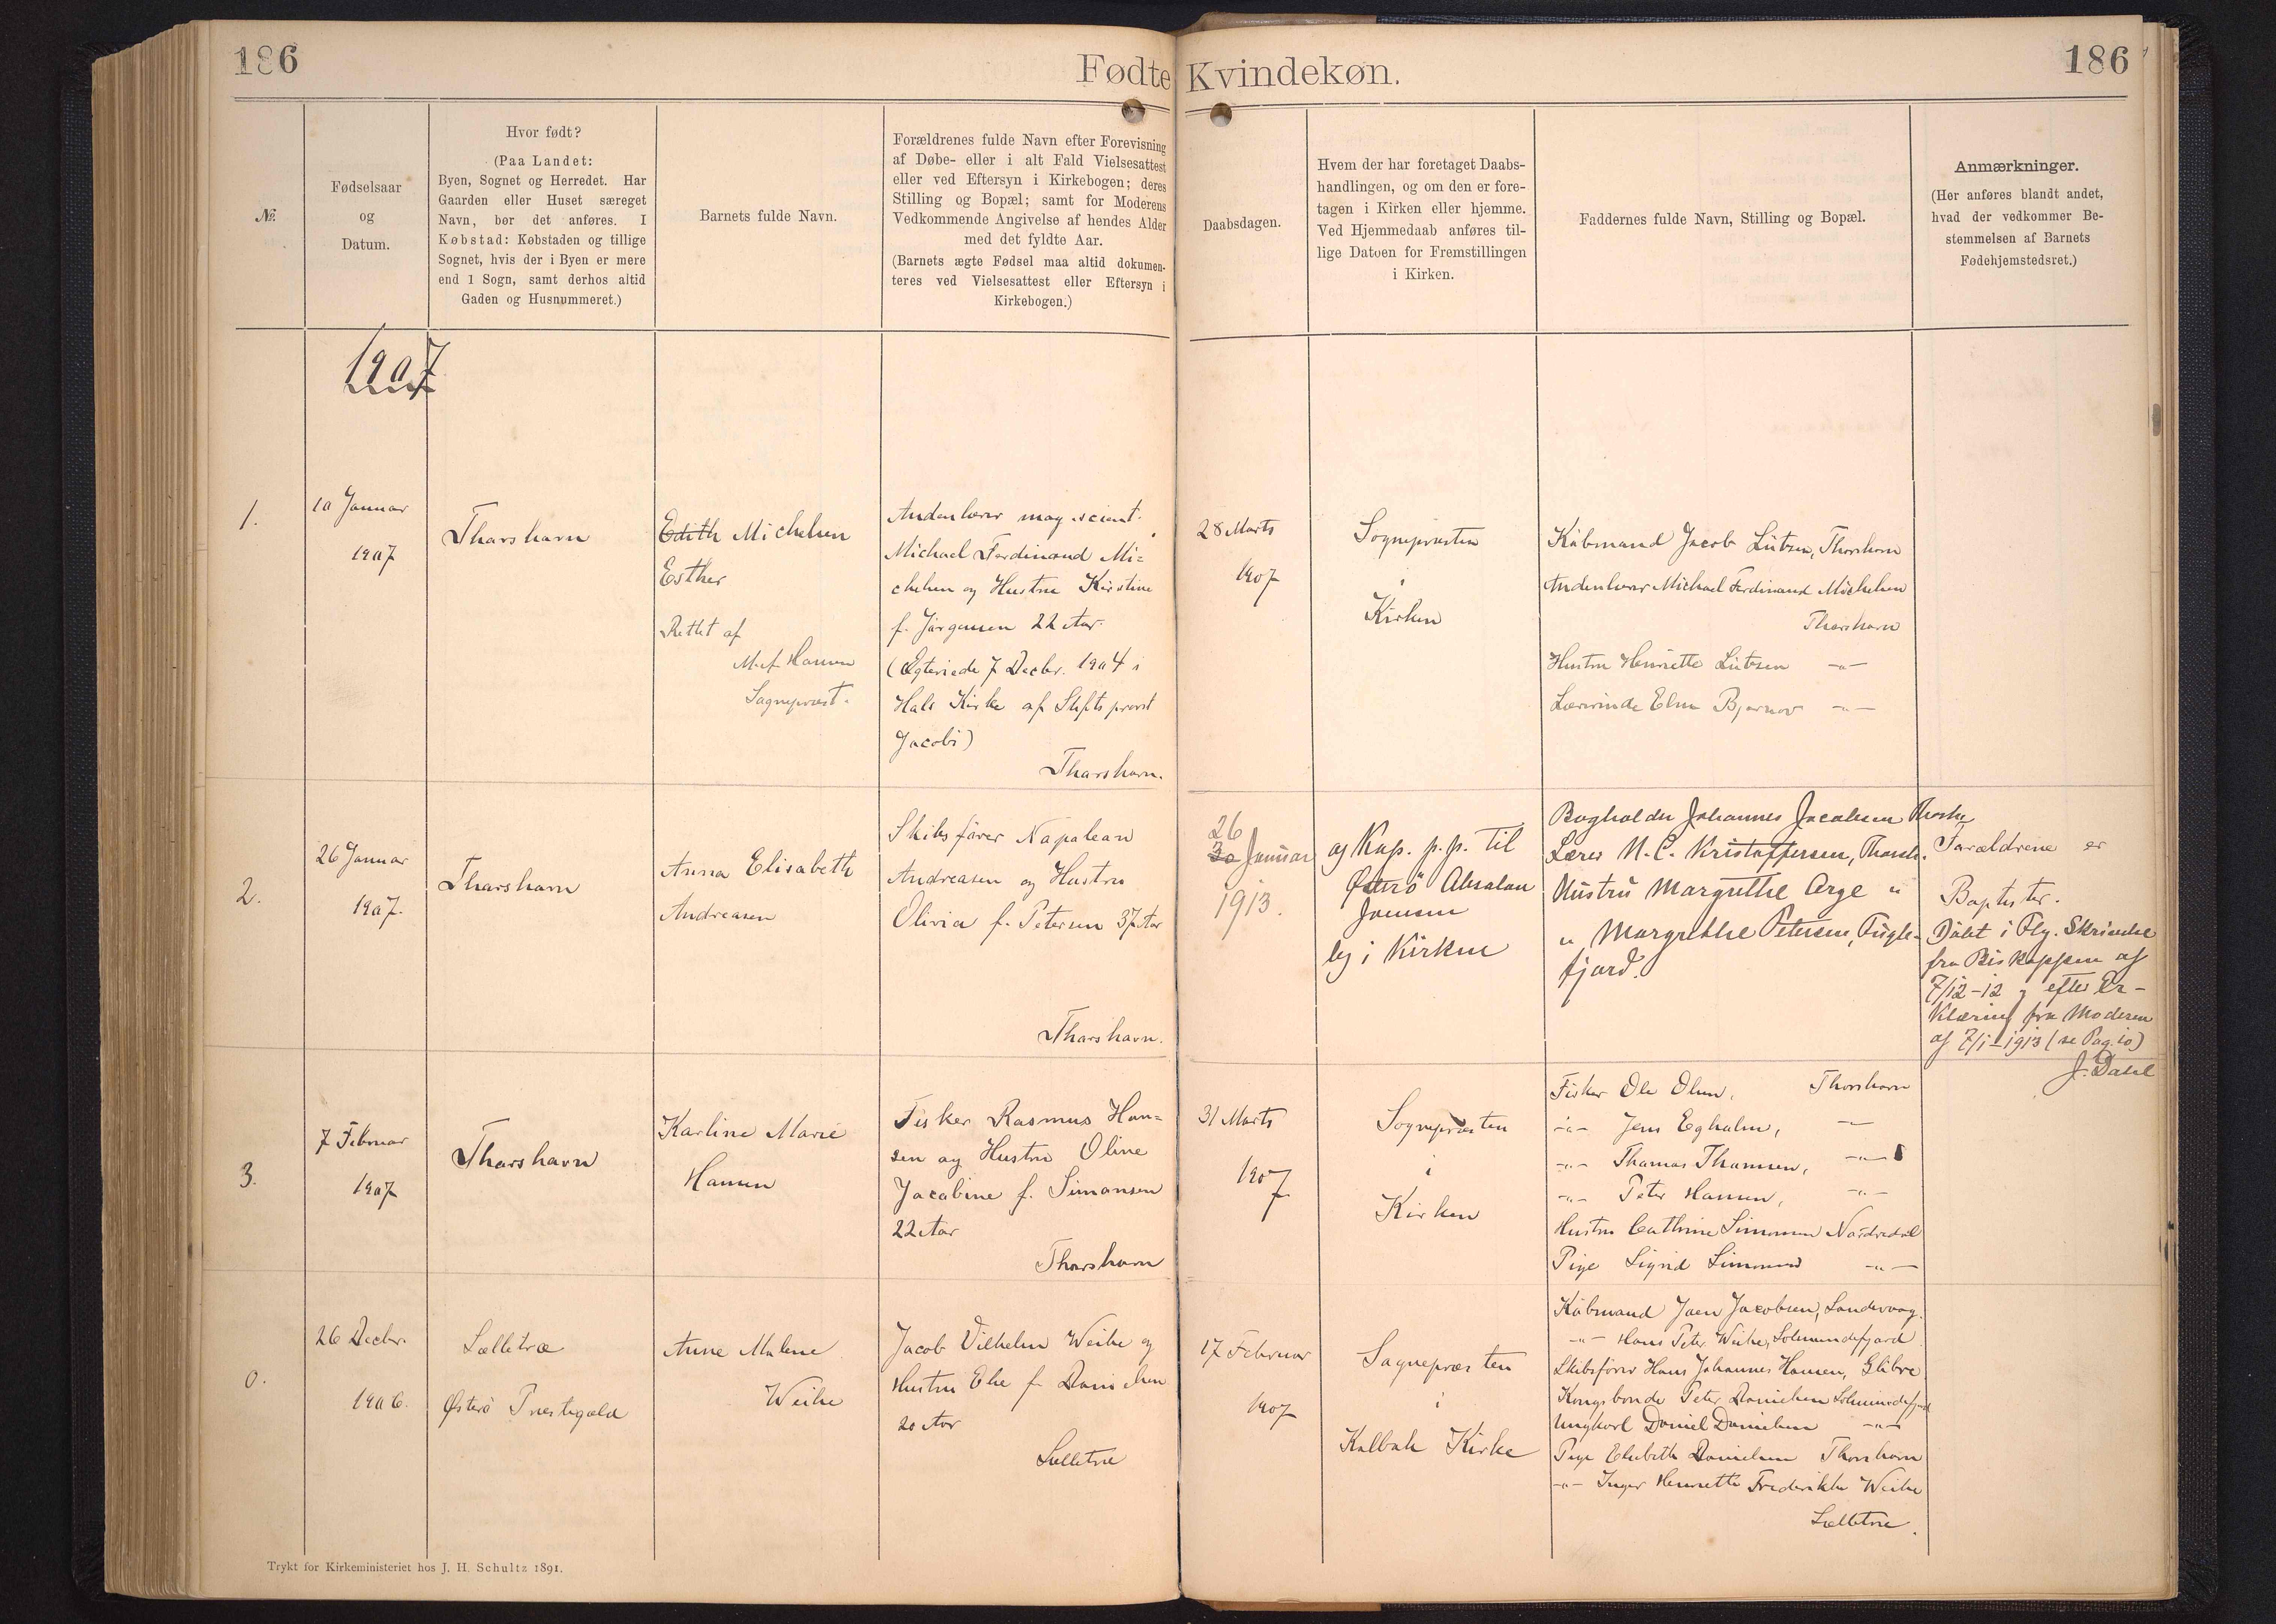 186
Fødte
Kvindekøn.
186
№.
Fødselsaar
og
Datum.
Hvor født?
(Paa Landet:
Byen, Sognet og Herredet. Har
Gaarden eller Huset særeget
Navn, bør det anføres. I
Købstad: Købstaden og tillige
Sognet, hvis der i Byen er mere
end 1 Sogn, samt derhos altid
Gaden og Husnummeret.)
Barnets fulde Navn.
Forældrenes fulde Navn efter Forevisning
af Døbe- eller i alt Fald Vielsesattest
eller ved Eftersyn i Kirkebogen; deres
Stilling og Bopæl; samt for Moderens
Vedkommende Angivelse af hendes Alder
med det fyldte Aar.
(Barnets ægte Fødsel maa altid dokumen-
teres ved Vielsesattest eller Eftersyn i
Kirkebogen.)
Daabsdagen.
Hvem der har foretaget Daabs-
handlingen, og om den er fore-
tagen i Kirken eller hjemme.
Ved Hjemmedaab anføres til-
lige Datoen for Fremstillingen
i Kirken.
Faddernes fulde Navn, Stilling og Bopæl.
Anmærkninger.
(Her anføres blandt andet,
hvad der vedkommer Be-
stemmelsen af Barnets
Fødehjemstedsret.)
1907
1.
10 Januar
1907
Thorshavn
Edith Michelsen
Esther
Rettet af
Hansen
Sognepræst.
Andenlærer mag. scient.
Michael Ferdinand Mi=
chelsen og Hustru Kirstine
f. Jörgensen 22 Aar.
(Egteviede 7 Decbr. 1904 i
Hals Kirke af Stiftsprovst
Jacobi)
Thorshavn.
28 Marts
1907
Sognepræsten
i
Kirken
Köbmand Jacob Lützen, Thorshavn
Andenlærer Michael Ferdinand Michelsen
Thorshavn
Hustru Henriette Lützen -"-
Lærerinde Elna Bjørnov -"-
2.
26 Januar
1907.
Thorshavn
Anna Elisabeth
Andreasen
Skibsförer Napoleon
Andreasen og Hustru
Olivia f. Petersen 37 Aar
Thorshavn.
26
30 Januar
1913.
og Kap. p. p. til
Österö Absalon
Joensen
i Kirken
Bogholder Johannes Jacobsen Thorsh.
Lærer N. C. Kristoffersen, Thorsh.
Hustru Margrethe Arge "
" Margrethe Petersen, Fugle-
fjord.
Forældrene er
Baptister.
Döbt i Flg. Skrivelse
fra Biskoppen af
7/12-12 og efter Er-
klæring fra Moderen
af 7/1-1913 (se Pag. 10)
J. Dahl
3.
7 Februar
1907
Thorshavn
Karline Marie
Hansen
Fisker Rasmus Han=
sen og Hustru Oline
Jacobine f. Simonsen
22 Aar
Thorshavn
31 Marts
1907
Sognepræsten
i
Kirken
Fisker Ole Olsen, Thorshavn
-"- Jens Egholm, -"-
-"- Thomas Thomsen, -"-
-"- Peter Hansen, -"-
Hustru Cathrine Simonsen Nordredal
Pige Sigrid Simonsen -"-
0.
26 Decbr.
1906.
Selletræ
Österö Præstegæld
Anne Malene
Weihe
Jacob Vilhelm Weihe og
Hustru Else f. Danielsen
20 Aar
Selletræ
17 Februar
1907
Sognepræsten
i
Kalbak Kirke
Köbmand Joen Jacobsen, Sandevaag.
-"- Hans Peter Weihe, Solmundefjord
Skibsförer Hans Johannes Hansen, Glibre
Kongsbonde Peter Danielsen Solmundefjord
Ungkarl Daniel Danielsen -"-
Pige Elisabeth Danielsen Thorshavn
-"- Inger Henriette Frederikke Weihe
Selletræ.
Trykt for Kirkeministeriet hos J. H. Schultz 1891.